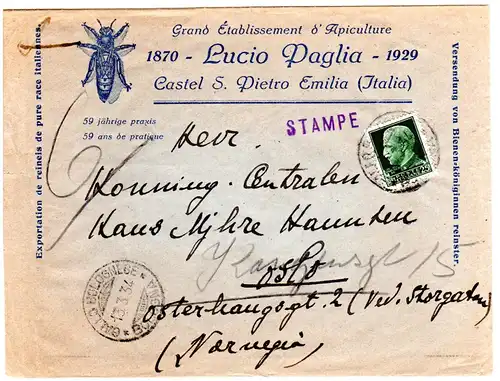 Grand Établissement d'Apiculture
1870 - Lucio Paglia - 1929
Castel S. Pietro Emilia (Italia)
59 jährige praxis
59 ans de pratique
Exportation de reineis de pure race italiennes.
Versendung von Bienen-königinnen reinster.
STAMPE
Herr
Honning-Centralen
Hans Mjhre Haunden
Oslo
Osterhaugogt. 2 (Ved. Storgaten)
(Norvegia)
15
BOLOGNESE